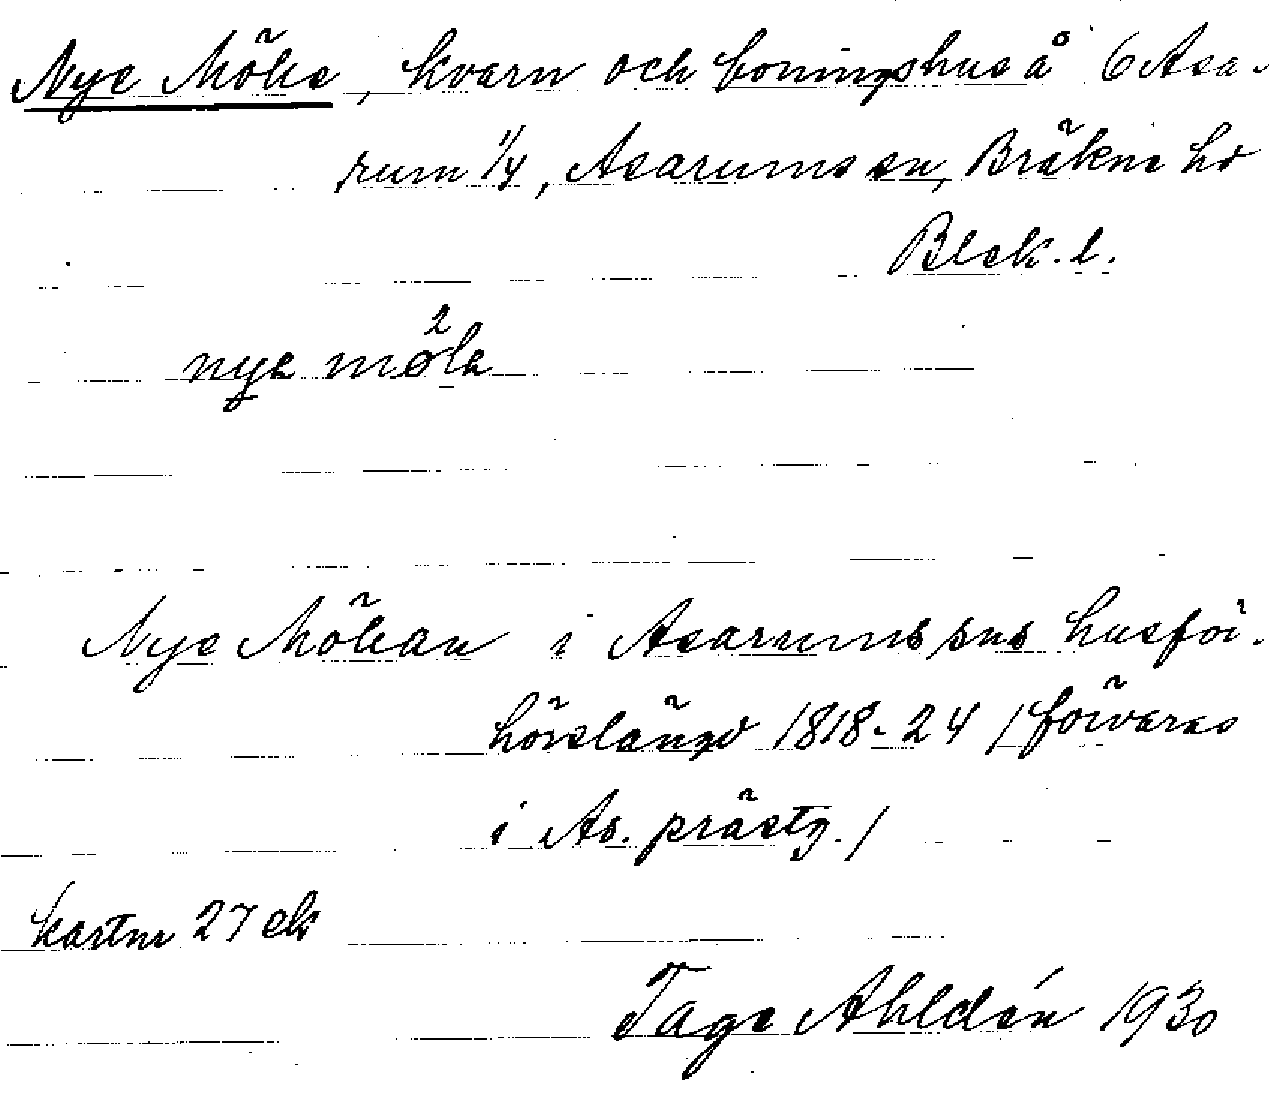 Nye Mölla, kvarn och boningshus å 6 Asa-
rum 1/4, Asarums sn, Bräkne hd
Blek. l.
nya mö²la
Nye Möllan i Asarums sns husför-
hörslängd 1818-24 /förvaras
i As. prästg./
kartnr 27 ek
Tage Ahldén 1930